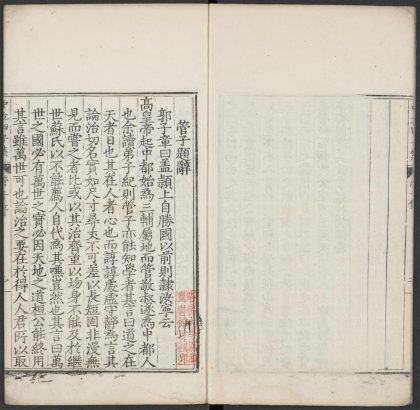 管子題辭
郭子章曰蓋潁上自勝國以前則隸汝寧云
高皇帝起中都始為三輔屬地而管敬叔遂為中都人
也余讀弟子紀則管子亦能知學者其言曰道之在
天者日也其在人者心也而諄諄處虛守靜為言其
論治切名實如尺寸尋丈不可差以長短固非漫無
見而嘗之者比或以其治齊重以場身不能及於繼
世蘇氏以不能薦人自代為其嘅豈然也其言曰萬
世之國必有萬世之寶必因天地之道桓公能終用
其言雖萬世可也論治之要在於得人人君所以取